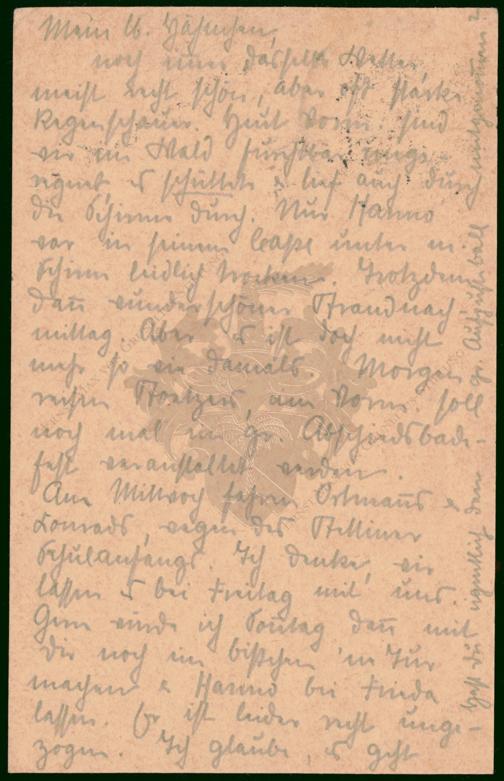 Mein lb. Hähnchen,
noch immer dasselbe Wetter,
meist recht schön, aber oft starke
Regenschauer. Heut Vorm. sind
wir im Wald furchtbar einge-
regnet, es schüttete & lief auch durch
die Schirme durch. Nur Hanno
war in seinem Cape unter m.
Schirm leidlich trocken. Trotzdem
dann wunderschöner Strandnach-
mittag. Aber es ist doch nicht
mehr so wie damals. Morgen
reisen am Vorm. soll
noch mal ein gr. Abschiedsbade-
fest veranstaltet werden.
Am Mittwoch fahren Ortmanns &
Conrads, wegen des Stettiner
Schulanfangs. Ich denke, wir
lassen es bei Freitag mit uns.
Gern würde ich Sonntag dann mit
Dir noch ein bißchen 'ne Tour
machen & Hanno bei Frieda
lassen. Er ist leider recht unge-
zogen. Ich glaube, es geht
Hast du eigentlich den gr. ball mitgenommen?